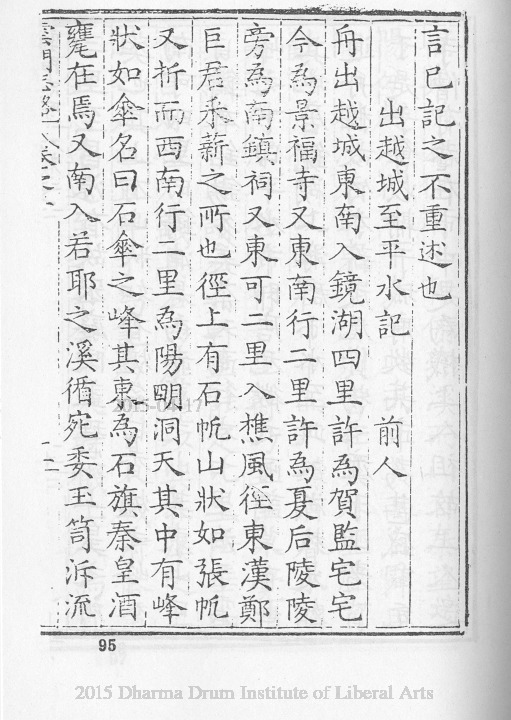 言已記之不重述也
出越城至平水記 前人
舟出越城東南入鏡湖四里許為賀監宅宅
今為景福寺又東南行二里許為夏后陵陵
旁為南鎮祠又東可二里入樵風徑東漢鄭
巨君釆薪之所也徑上有石帆山狀如張帆
又折而西南行二里為陽明洞天其中有峰
狀如傘名曰石傘之峰其東為石旗秦皇酒
甕在焉又南入若耶之溪循宛委玉笥泝流
雲門志略 卷之
95
2015 Dharma Drum Institute of Liberal Arts